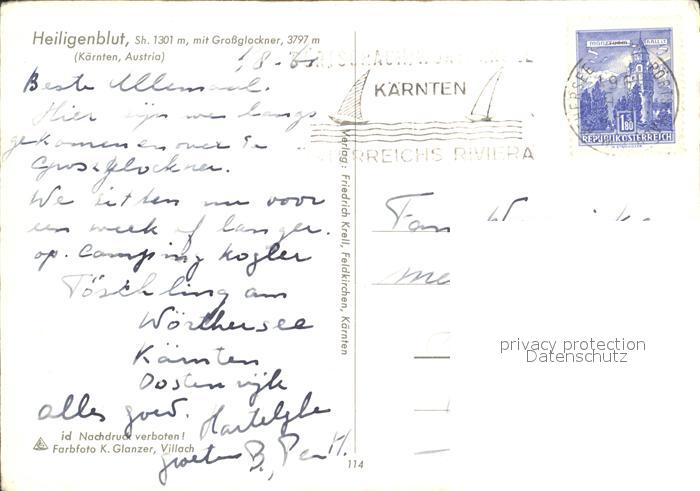 Heiligenblut, Sh. 1301 m, mit Großglockner, 3797 m
(Kärnten, Austria)
Beste Allemaal.
Hier zijn we langs
gekomen en over de
Grossglockner.
We zitten nu voor
een week of langer.
op. Camping Kogler
Töschling am
Wörthersee
Kärnten
Oostenrijk
alles goed. Hartelijke
groeten B, P en H.
id Nachdruck verboten!
Farbfoto K. Glanzer, Villach
Verlag: Friedrich Krell, Feldkirchen, Kärnten
114
KÄRNTEN
ÖSTERREICHS RIVIERA
MÜNZTURM HALL I.T.
1.80
REPUBLIK ÖSTERREICH
Fam
privacy protection
Datenschutz